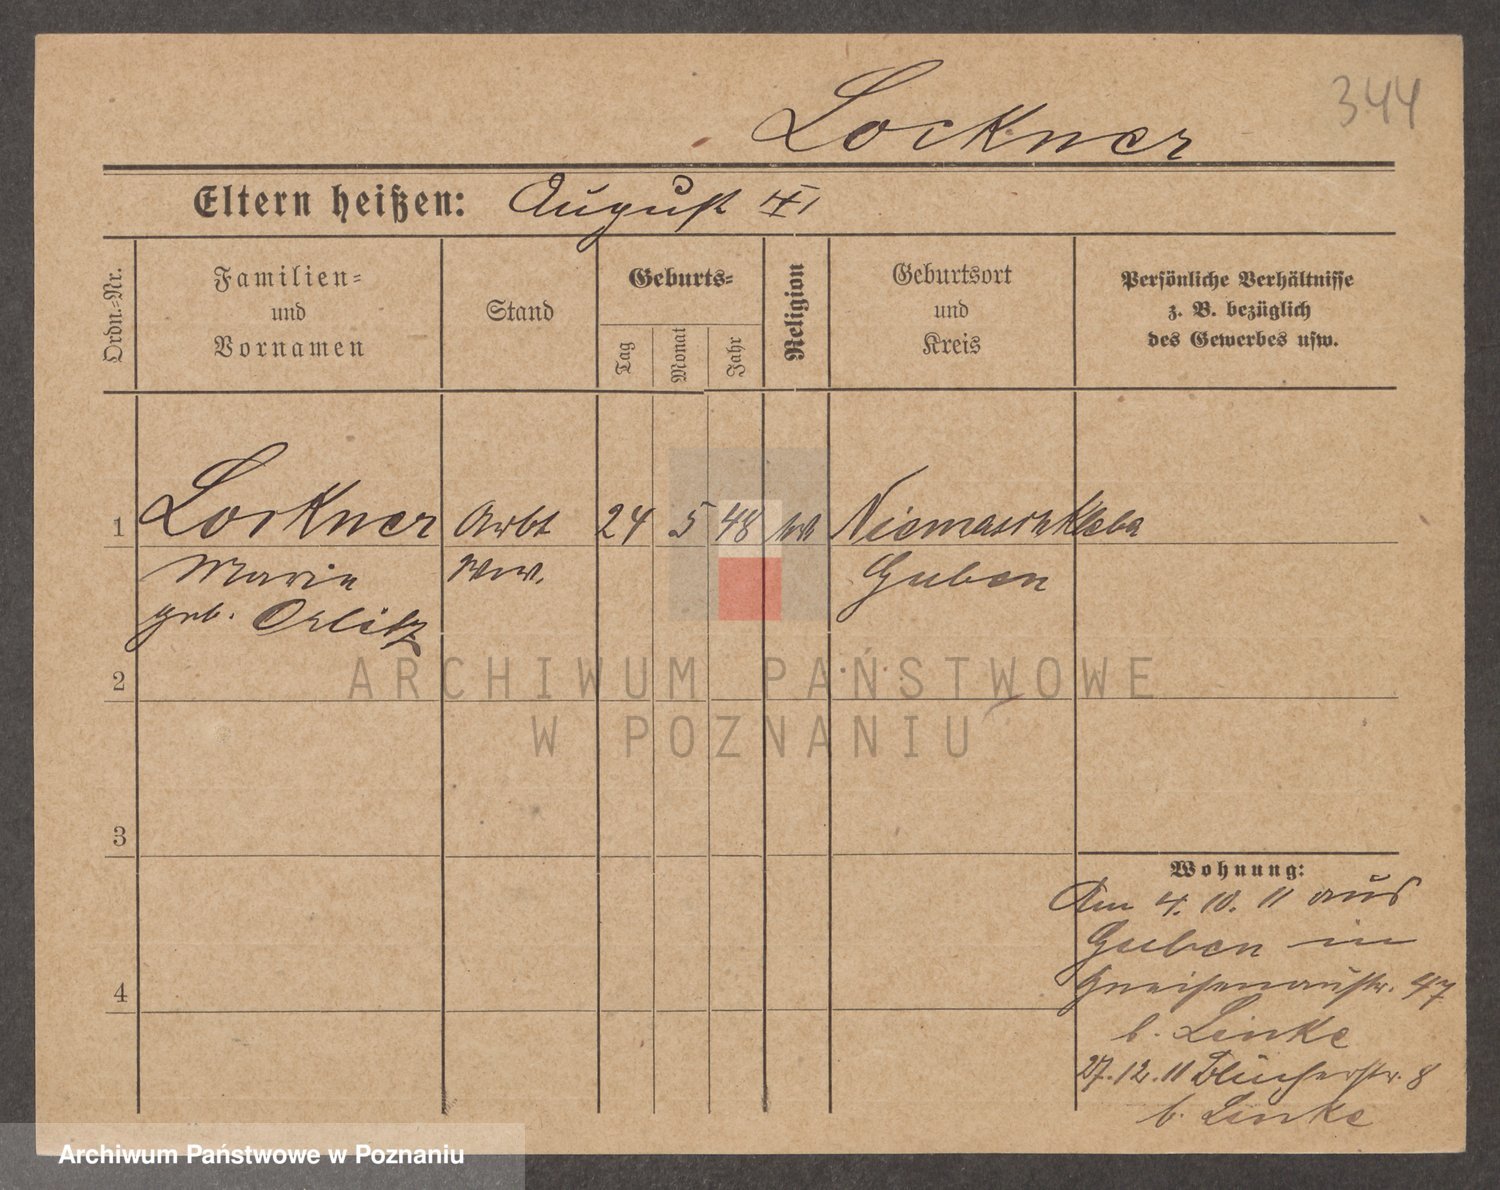 344
Lockner
Eltern heißen: August
Ordn.=Nr.
Familien=
und
Vornamen
Stand
Geburts=
Tag
Monat
Jahr
Religion
Geburtsort
und
Kreis
Persönliche Verhältnisse
z. B. bezüglich
des Gewerbes usw.
1 Lockner Arbt 24 5 48 Niemaschkleba
Maria Wwe.
geb. Orlitz
Guben
2
3
4
Wohnung:
Am 4. 10. 11 aus
Guben in
Gneisenaustr. 47
b. Linke
27. 12. 11 Blücherstr. 8
b. Linke
ARCHIWUM PAŃSTWOWE
W POZNANIU
Archiwum Państwowe w Poznaniu